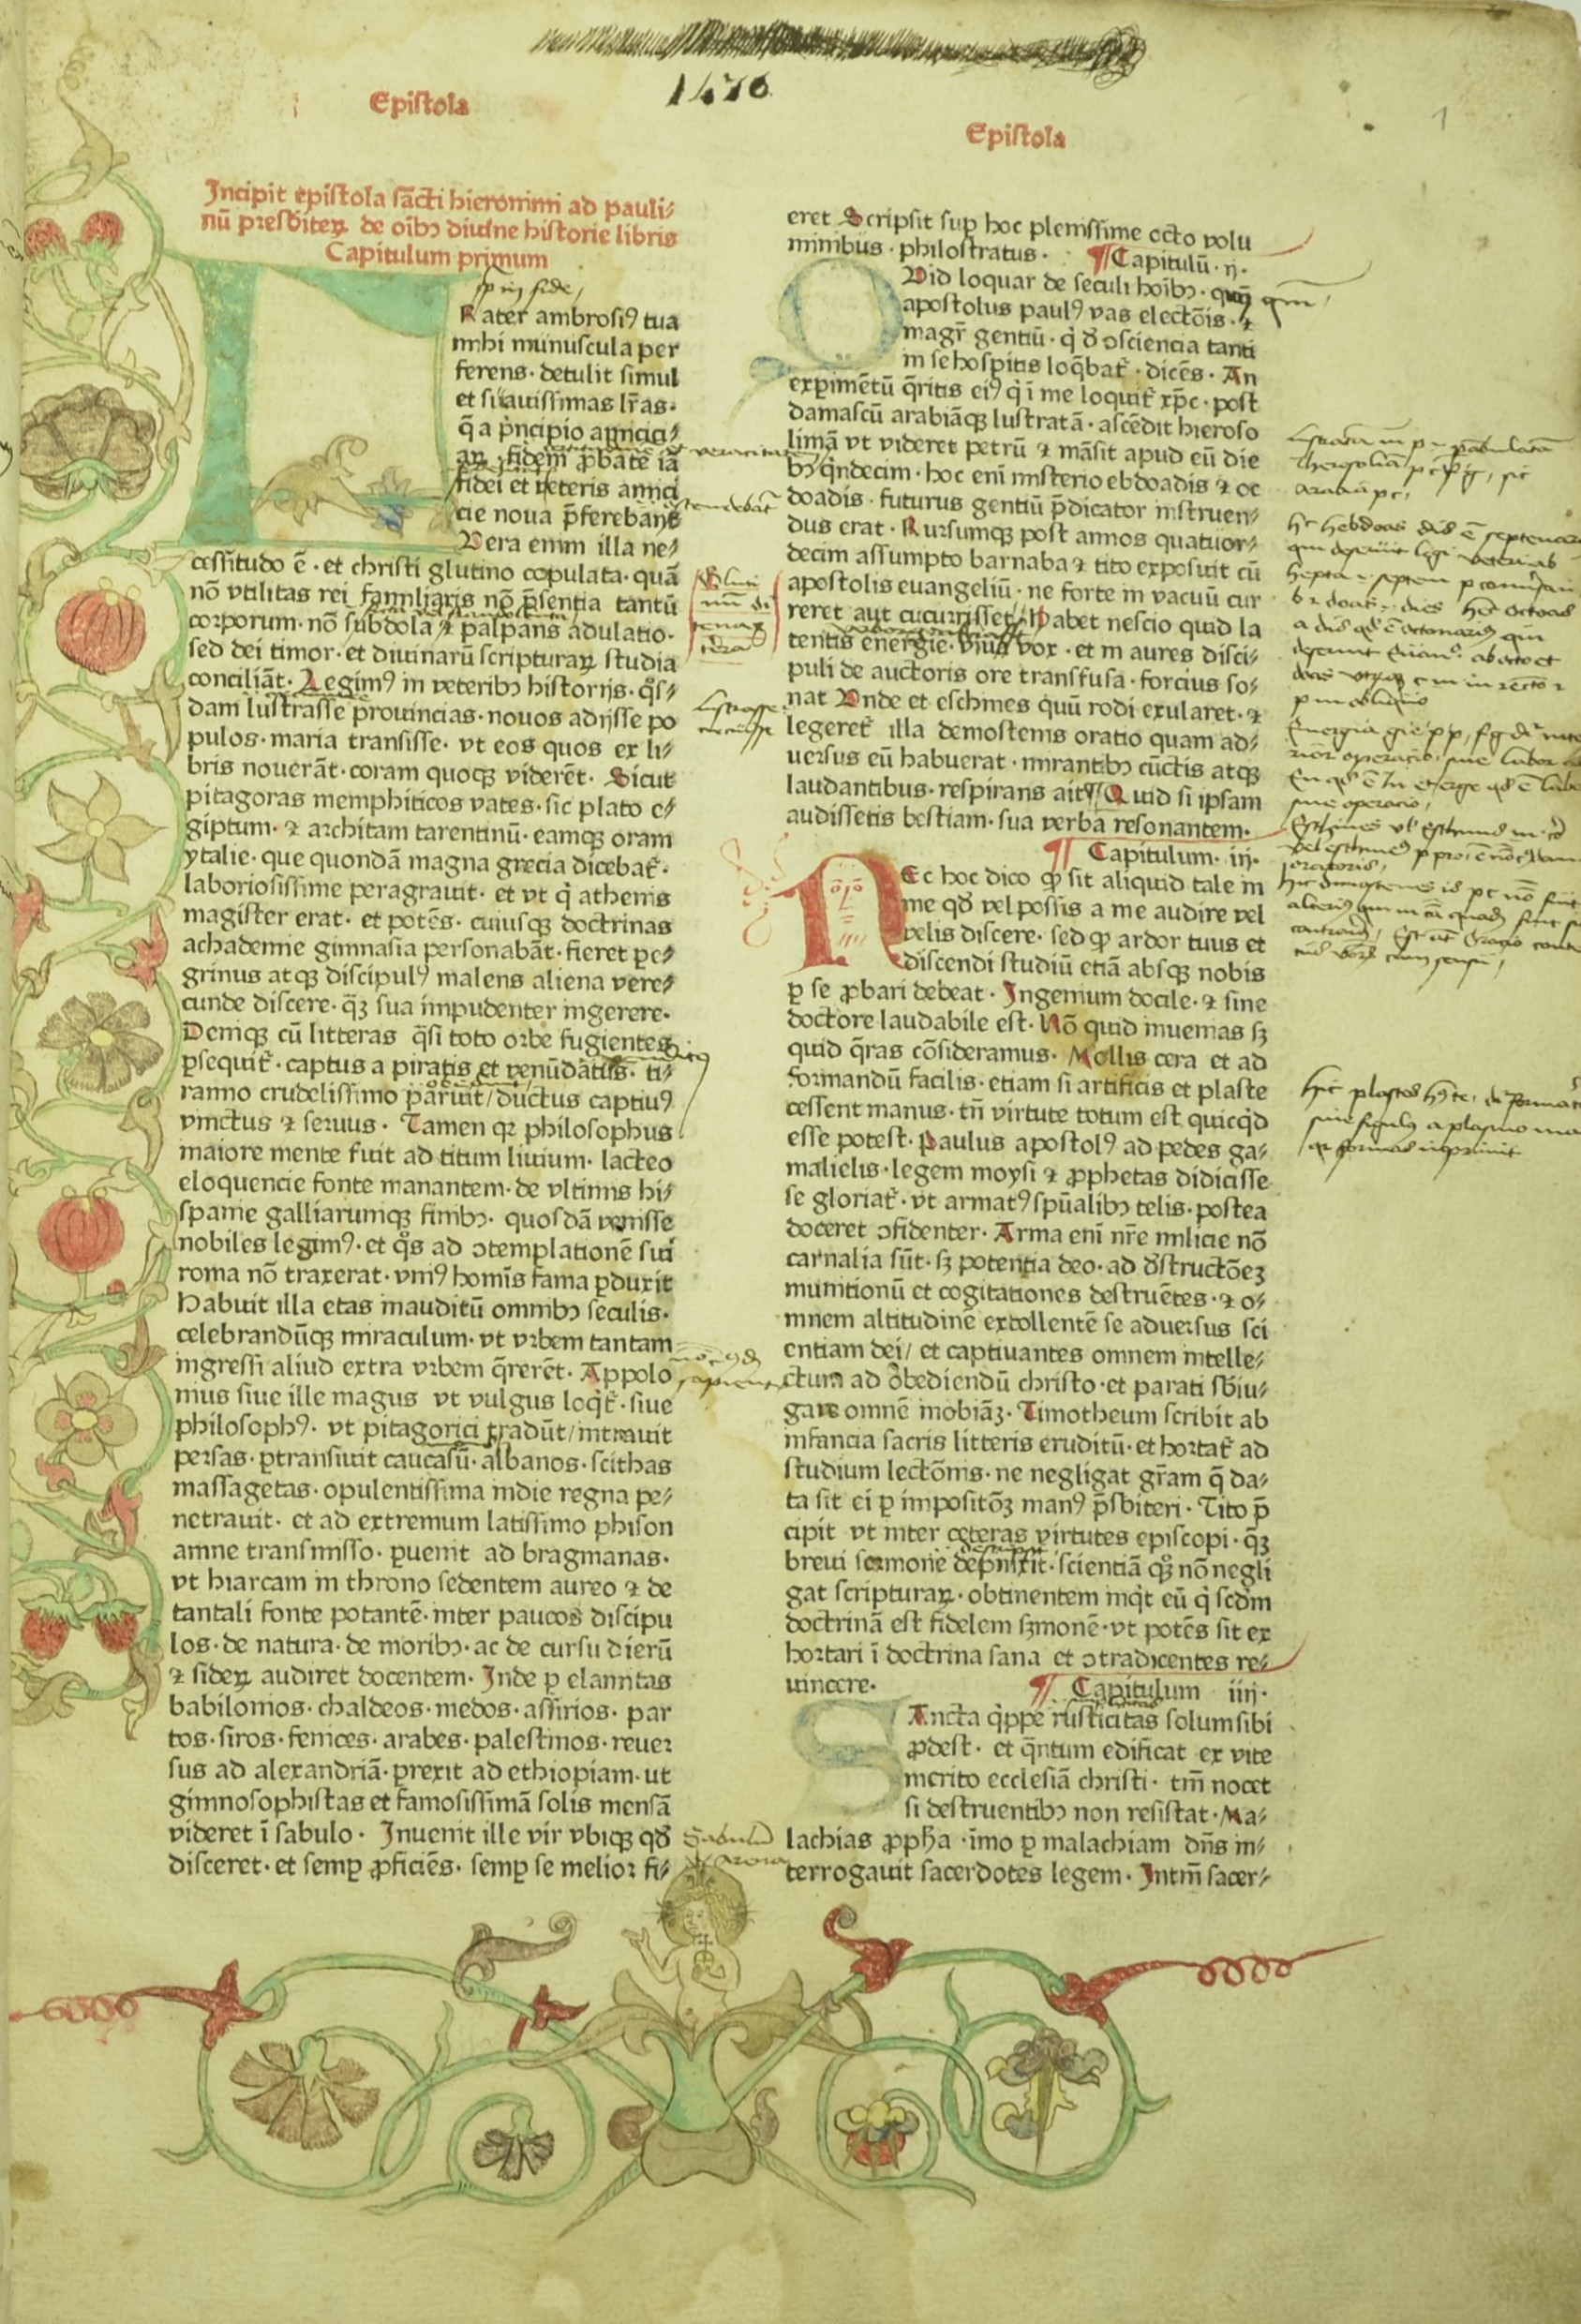 1476
1
Epistola
Epistola
Incipit epistola sācti hieronimi ad pauli⸗
nū presbiteꝝ de oībꝫ diuine historie libris
Capitulum primum
FRater ambrosiꝰ tua
mihi munuscula per
ferens · detulit simul
et suauissimas lr̄as·
q̄ a prıncipio amici⸗
aꝝ · fidem ꝓbate iā
fidei et veteris amici
cie noua p̄ferebant
Vera enim illa ne⸗
cessitudo ē · et christi glutino copulata · quā
nō vtilitas rei familiaris nō p̄sentia tantū
corporum · nō subdola ⁊ palpans adulatio·
sed dei timor · et diuinarū scripturaꝝ studia
conciliāt · Legimꝰ in veteribꝫ historijs · q̊s⸗
dam lustrasse prouincias · nouos adijsse po
pulos · maria transisse · vt eos quos ex li⸗
bris nouerāt · coram quoqꝫ viderēt · Sicut
pitagoras memphiticos vates · sic plato e⸗
giptum · ⁊ architam tarentinū · eamqꝫ oram
ytalie · que quondā magna grecia dicebat̄ ·
laboriosissime peragrauit · et vt q̇ athenis
magister erat · et potēs · cuiusqꝫ doctrinas
achademie gimnasia personabāt · fieret pe⸗
grinus atqꝫ discipulꝰ malens aliena vere⸗
cunde discere · q̄ꝫ sua impudenter ingerere·
Deniqꝫ cū litteras q̄si toto orbe fugientes
ꝑsequit̄ · captus a piratis et venūdatus · ti⸗
ranno crudelissimo paruit / ductus captiuꝰ
vinctus ⁊ seruus · Tamen qꝛ philosophus
maiore mente fuit ad titum liuium · lacteo
eloquencie fonte manantem · de vltimis hi⸗
spanie galliarumqꝫ finibꝫ · quosdā venisse
nobiles legimꝰ · et q̊s ad ↄtemplationē sui
roma nō traxerat · vniꝰ homīs fama ꝑduxit
Habuit illa etas inauditū omnibꝫ seculis·
celebrandūqꝫ miraculum · vt vrbem tantam
ingressi aliud extra vrbem q̄rerēt · Appolo
nius siue ille magus vt vulgus loq̇t̄ · siue
philosophꝰ · vt pitagorici tradūt / intrauit
persas · ꝑtransiuit caucasū · albanos · scithas
massagetas · opulentissima indie regna pe⸗
netrauit · et ad extremum latissimo phison
amne transmisso · ꝑuenit ad bragmanas·
vt hiarcam in throno sedentem aureo ⁊ de
tantali fonte potantē · inter paucos discipu
los · de natura · de moribꝫ · ac de cursu dierū
⁊ sideꝝ audiret docentem · Inde ꝑ elamitas
babilonios · chaldeos · medos · assirios · par
tos · siros · fenices · arabes · palestinos · reuer
sus ad alexandriā · ꝑrexit ad ethiopiam · ut
gimnosophistas et famosissimā solis mensā
videret ī sabulo · Inuenit ille vir vbiqꝫ qđ
disceret · et semꝑ ꝓficiēs · semꝑ se melior fi⸗
eret Scripsit suꝑ hoc plenissime octo volu
minibus · philostratus ·
¶ Capitulū · ij·
QVid loquar de seculi hoībꝫ ·
apostolus paulꝰ vas electōis · ⁊
magr̄ gentiū · q̇ đ ↄsciencia tanti
in se hospitis loq̄bat̄ · dicēs · An
experimētū q̄ritis eiꝰ q̇ ī me loquit̄ xp̄c · post
damascū arabiāqꝫ lustratā · ascēdit hieroso
limā vt videret petrū ⁊ māsit apud eū die
bꝫ q̇ndecim · hoc enī misterio ebdoadis ⁊ oc
doadis · futurus gentiū p̄dicator instruen⸗
dus erat · Rursumqꝫ post annos quatuor⸗
decim assumpto barnaba ⁊ tito exposuit cū
apostolis euangeliū · ne forte in vacuū cur
reret aut cucurrisset / Habet nescio quid la
tentis energie · viua vox · et in aures disci⸗
puli de auctoris ore transfusa · forcius so⸗
nat Vnde et eschines quū rodi exularet · ⁊
legeret̄ illa demostenis oratio quam ad⸗
uersus eū habuerat · mirantibꝫ cūctis atqꝫ
laudantibus · respirans ait ¶ Quid si ipsam
audissetis bestiam · sua verba resonantem·
¶ Capitulum · iij·
NEc hoc dico ꝙ sit aliquid tale in
me qđ vel possis a me audire vel
velis discere · sed ꝙ ardor tuus et
discendi studiū etiā absqꝫ nobis
ꝑ se ꝓbari debeat · Ingenium docile · ⁊ sine
doctore laudabile est · Nō quid inuenias sꝫ
quid q̄ras cōsideramus · Mollis cera et ad
formandū facilis · etiam si artificis et plaste
cessent manus · tn̄ virtute totum est quicq̇d
esse potest · Paulus apostolꝰ ad pedes ga⸗
malielis · legem moysi ⁊ ꝓphetas didicisse
se gloriat̄ · vt armatꝰ spūalibꝫ telis · postea
doceret ↄfidenter · Arma enī nr̄e milicie nō
carnalia sūt · sꝫ potentia deo · ad đstructōeꝫ
munitionū et cogitationes destruētes · ⁊ o⸗
mnem altitudinē extollentē se aduersus sci
entiam dei / et captiuantes omnem intelle⸗
ctum ad obediendū christo · et parati sbiu⸗
gare omnē inobiāꝫ · Timotheum scribit ab
infancia sacris litteris eruditū · et hortat̄ ad
studium lectōnis · ne negligat gr̄am q̄ da⸗
ta sit ei ꝑ impositōꝫ manꝰ p̄sbiteri · Tito p̄
cipit vt inter ceteras virtutes episcopi · q̄ꝫ
breui sermone depinxit · scientiā qꝫ nō negli
gat scripturaꝝ · obtinentem inq̇t eū q̇ scđm
doctrinā est fidelem sꝫmonē · vt potēs sit ex
hortari ī doctrina sana et ↄtradicentes re⸗
uincere·
¶ Capitulum iiij·
SAncta q̇ppe rusticitas solum sibi
ꝓdest · et q̄ntum edificat ex vite
merito ecclesiā christi · tm̄ nocet
si destruentibꝫ non resistat · Ma⸗
lachias ꝓph̄a · īmo ꝑ malachiam dn̄s in⸗
terrogauit sacerdotes legem · Intm̄ sacer⸗